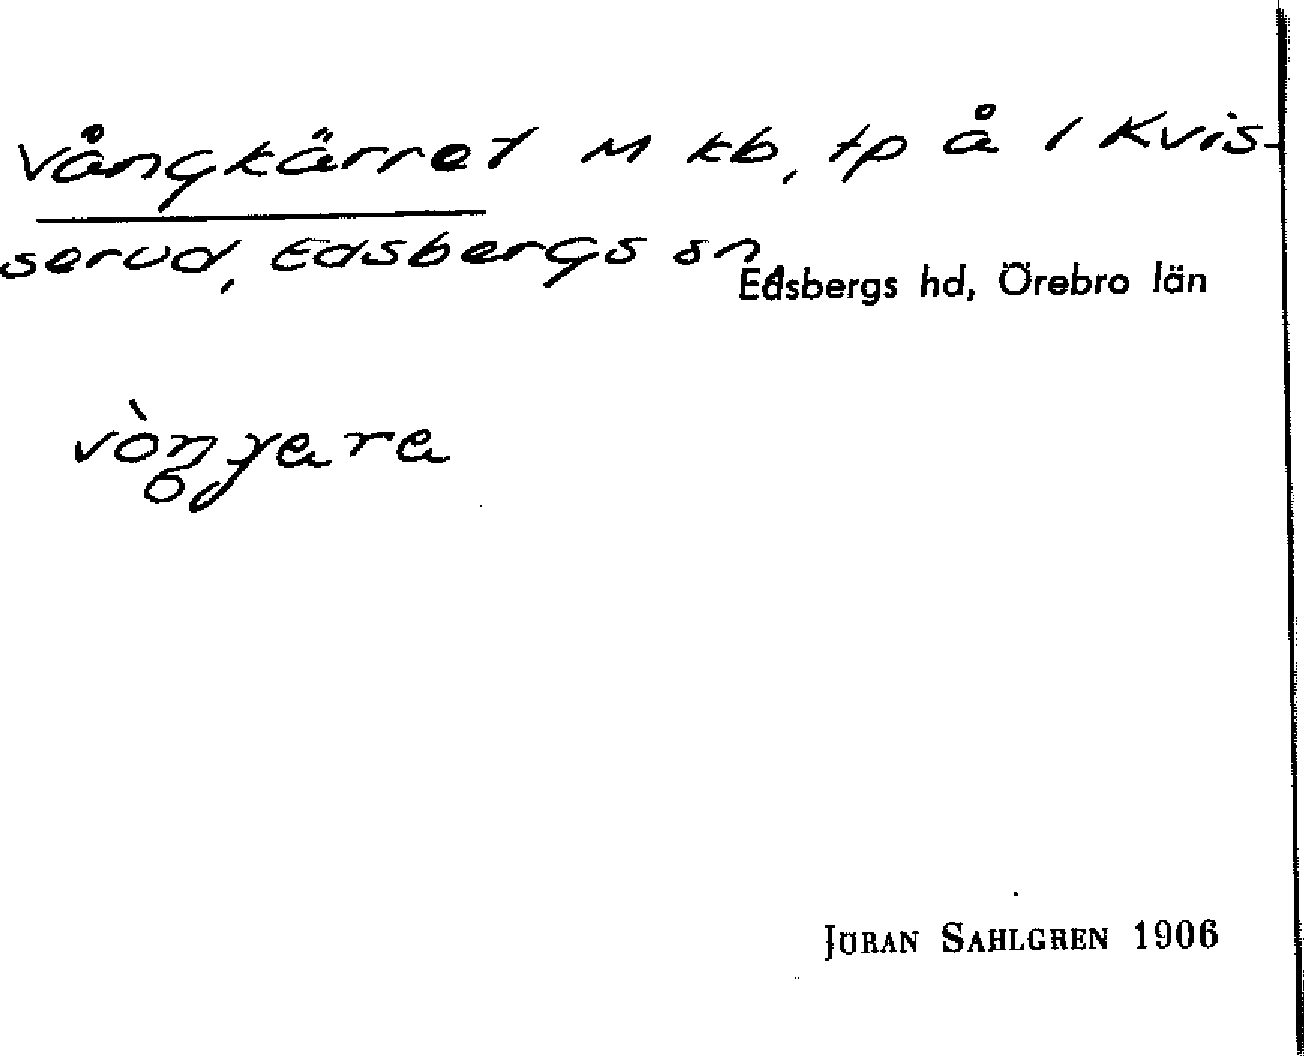 Vångkärret M kb, tp å 1 Kvis-
serud, Edsbergs sn,
Edsbergs hd, Örebro län
JÖRAN SAHLGREN 1906